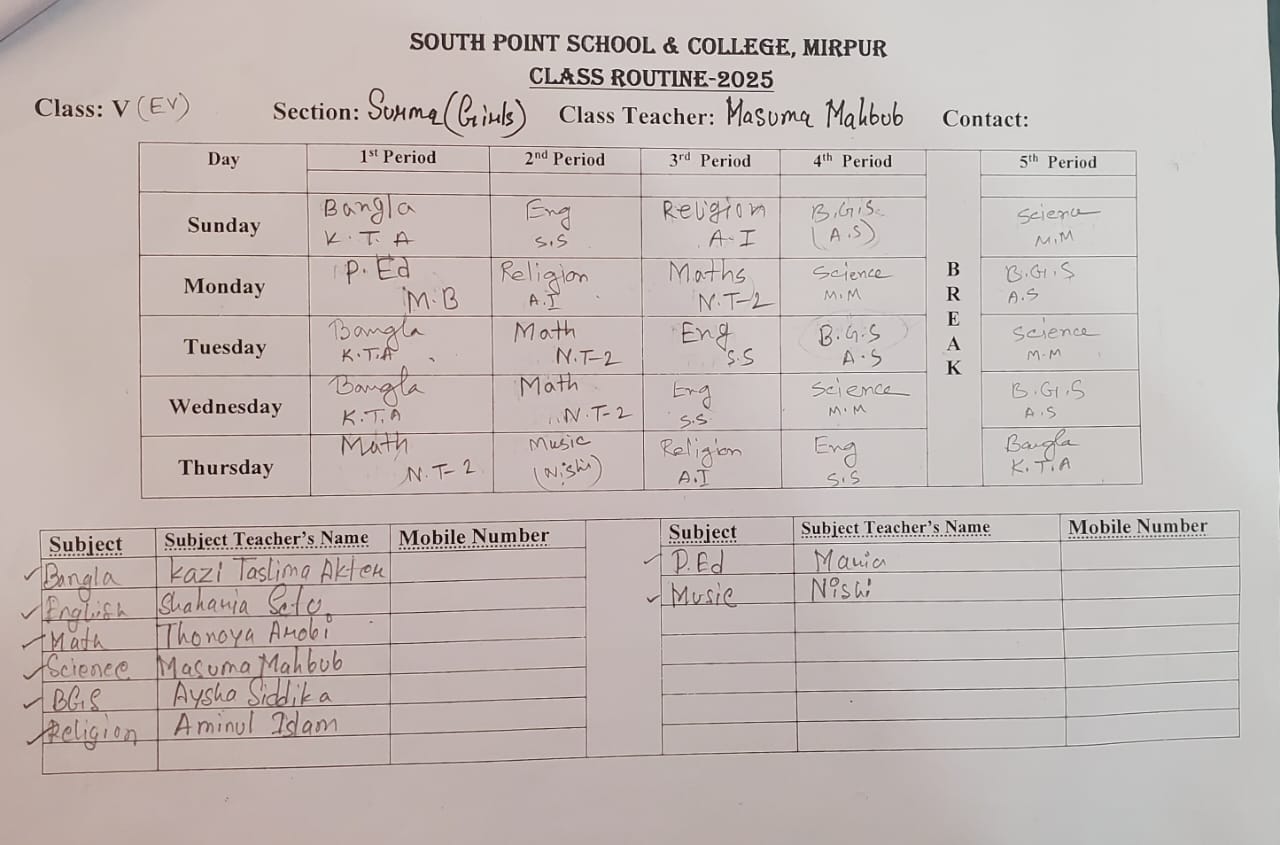 SOUTH POINT SCHOOL & COLLEGE, MIRPUR
CLASS ROUTINE-2025
Class: V (EV) Section: Surma (Girls) Class Teacher: Masuma Mahbub Contact:
Day 1st Period 2nd Period 3rd Period 4th Period BREAK 5th Period
Sunday Bangla Eng Religion B.G.S. Science
K.T.A S.S A-I (A.S) M.M
Monday P. Ed Religion Maths Science B.G.S
M.B A.I N.T-2 M.M A.S
Tuesday Bangla Math Eng B.G.S Science
K.T.A N.T-2 S.S A.S M.M
Wednesday Bangla Math Eng Science B.G.S
K.T.A N.T-2 S.S. M.M A.S
Thursday Math Music Religion Eng Bangla
N.T-2 (Nishi) A.I S.S K.T.A
Subject Subject Teacher's Name Mobile Number Subject Subject Teacher's Name Mobile Number
Bangla Kazi Taslima Akter P.Ed Maria
English Shaharia Music Nishi
Math Thonoya Arobi
Science Masuma Mahbub
BGS Aysha Siddika
Religion Aminul Islam